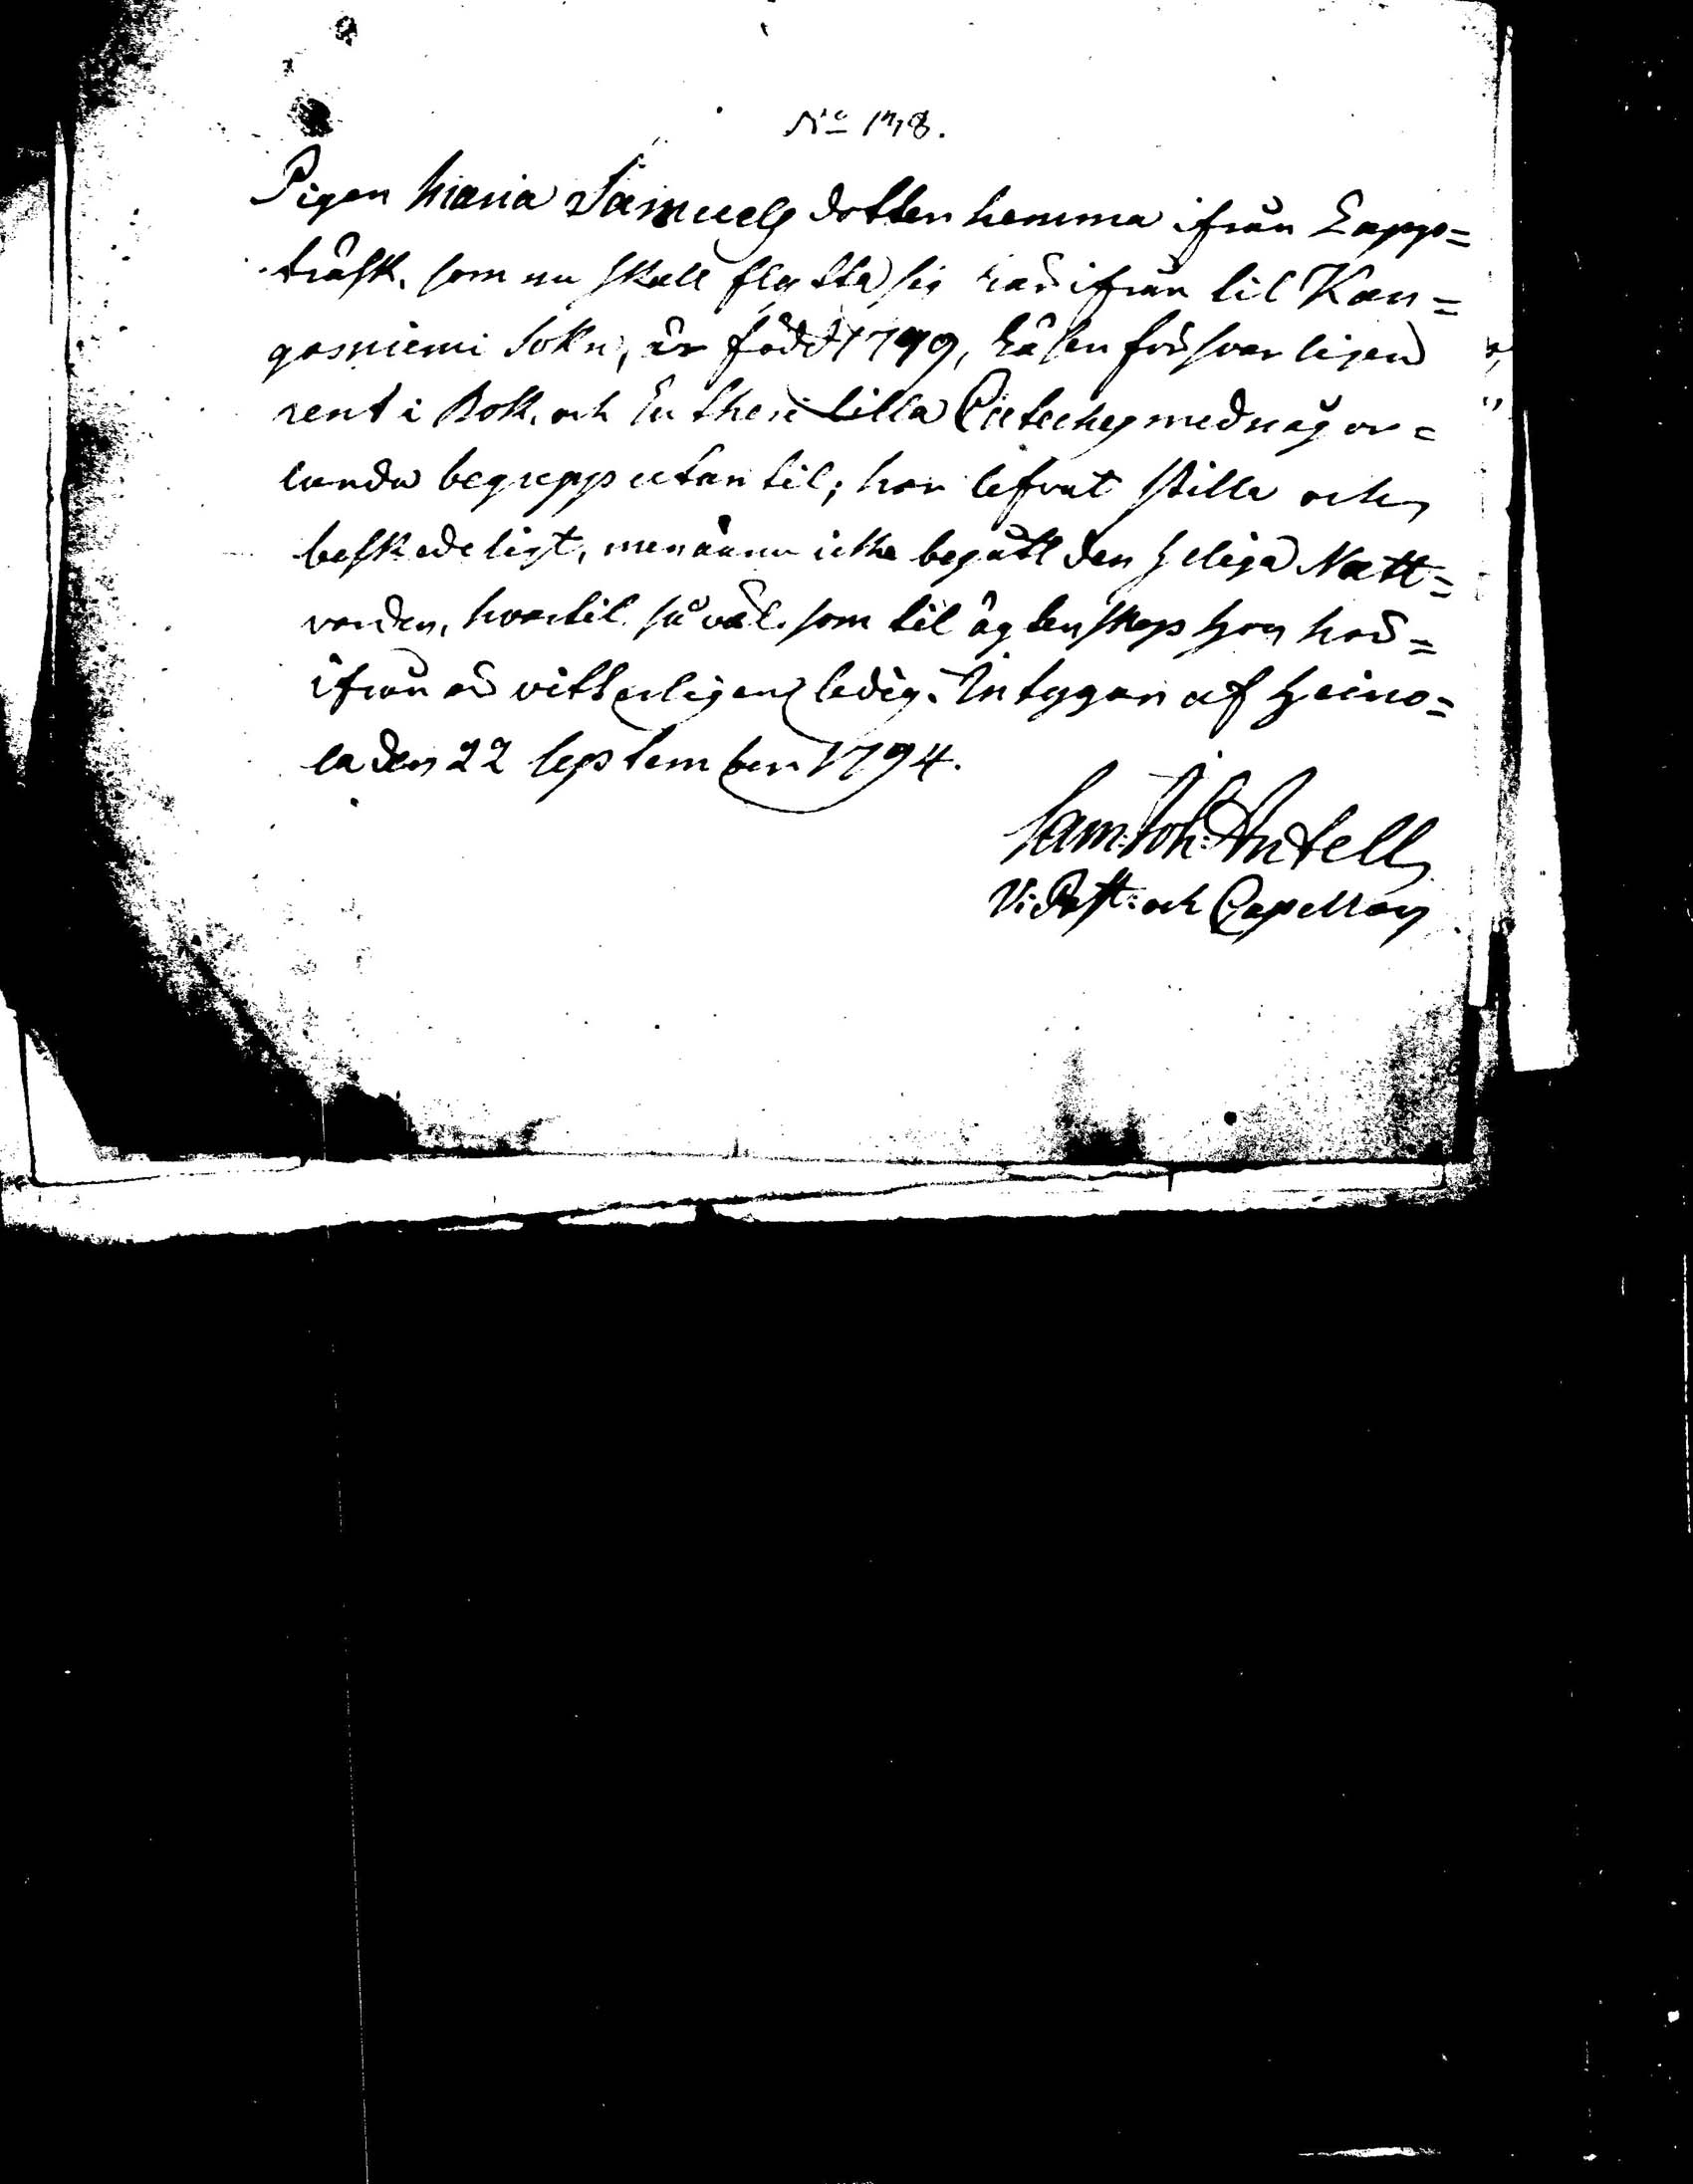 No 178.
Pigan Maria Samuelsdotter hemma ifrån Lapp=
träsk, som nu skall flytta sig härifrån til Kan=
gasniemi Sokn, är född 1779, Läser förswarligen
rent i Bok, och Lutheri Lilla Cateches med någor=
lunda begrepp utantil; har lefvat stilla och
beskedeligt, men ännu icke begått den Heliga Natt=
varden, hvartil så väl som til ägtenskap hon här=
ifrån är vitterligen ledig. Intygar af Heino=
la den 22 September 1794.
Sam: Joh: Antell
V: Past: och Capellan